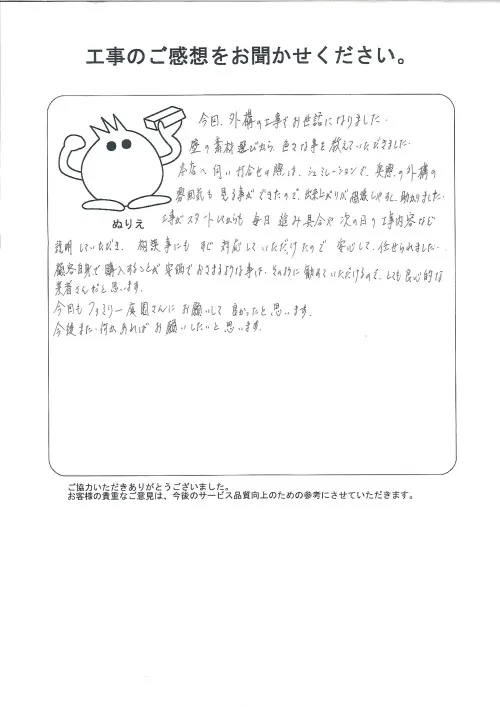 工事のご感想をお聞かせください。
今回、外構の工事でお世話になりました。
壁の素材選びから、色々な事を教えていただきました。
本店へ伺い打合せの際は、シュミレーションで、実際の外構の
雰囲気も見る事ができたので、出来上がりが想像しやすく、助かりました。
工事がスタートしてからも毎日進み具合や次の日の工事内容など
ぬりえ
説明していただき、相談事にもすぐ対応していただけたので安心して、任せられました。
顧客自身で購入することが安価でおさまるような事は、そのように勧めていただけるので、とても良心的な
業者さんだと思います。
今回もファミリー庭園さんにお願いして良かったと思います。
今後また何かあればお願いしたいと思います。
ご協力いただきありがとうございました。
お客様の貴重なご意見は、今後のサービス品質向上のための参考にさせていただきます。